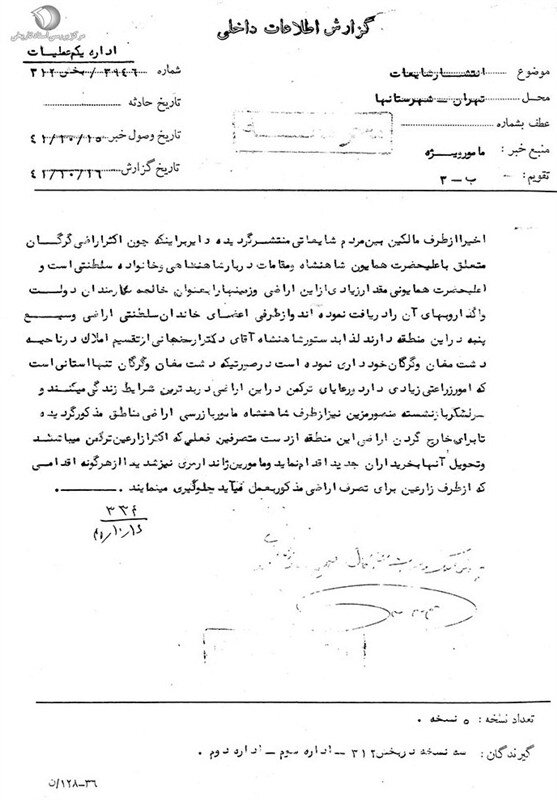 مرکز بررسی اسناد تاریخی
گزارش اطلاعات داخلی
اداره یکم عملیات
موضوع انتشار شایعات
شماره ۳۹۴۶ / بخش ۳۱۲
محل تهران - شهرستانها
تاریخ حادثه
عطف بشماره
تاریخ وصول خبر ۴۱/۱۰/۱۵
منبع خبر : مامور ویژه
تاریخ گزارش ۴۱/۱۰/۱۶
تقویم : ب - ۳
اخیرا از طرف مالکین بین مردم شایعاتی منتشر گردیده دایر براینکه چون اکثر اراضی گرگان
متعلق باعلیحضرت همایون شاهنشاه ومقامات دربار شاهنشاهی وخانواده سلطنتی است و
اعلیحضرت همایونی مقدار زیادی از این اراضی وزمینها را بعنوان خالصه بکارمندان دولت
واگذار و بهای آن را دریافت نموده اند و از طرفی اعضای خاندان سلطنتی اراضی وسیع
پنبه در این منطقه دارند لذا بدستور شاهنشاه آقای دکتر ارسنجانی از تقسیم املاک در ناحیه
دشت مغان وگرگان خودداری نموده است در صورتیکه دشت مغان وگرگان تنها استانی است
که امور زراعتی زیادی دارد و رعایای ترکمن در این اراضی در بدترین شرایط زندگی میکنند و
سرلشکر بازنشسته منصور مزین نیز از طرف شاهنشاه مامور بازرسی اراضی مناطق مذکور گردیده
تا برای خارج کردن اراضی این منطقه از دست متصرفین فعلی که اکثر زارعین ترکمن میباشند
وتحویل آنها بخریداران جدید اقدام نماید و مامورین ژاندارمری نیز شدیدا از هرگونه اقدامی
که از طرف زارعین برای تصرف اراضی مذکور بعمل میآید جلوگیری مینمایند .
۳۳۴
۴۱/۱۰/۱۶
تعداد نسخه : ۵ نسخه .
گیرندگان : سه نسخه در بخش ۳۱۲ - اداره سوم - اداره دوم .
ن/۱۲۸-۳۶